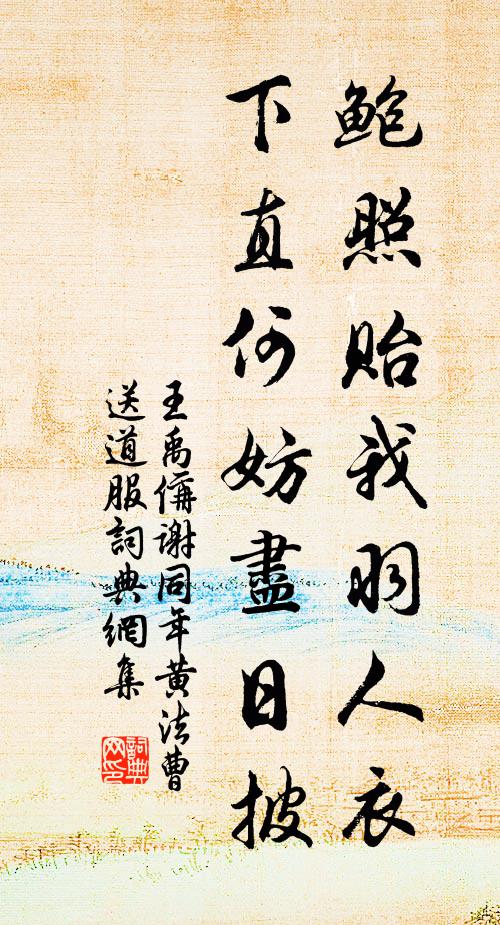 鮑照貽我羽人衣
下直何妨盡日披
王禹偁謝同年黃法曹
送道服詞典網集
詞典
网印